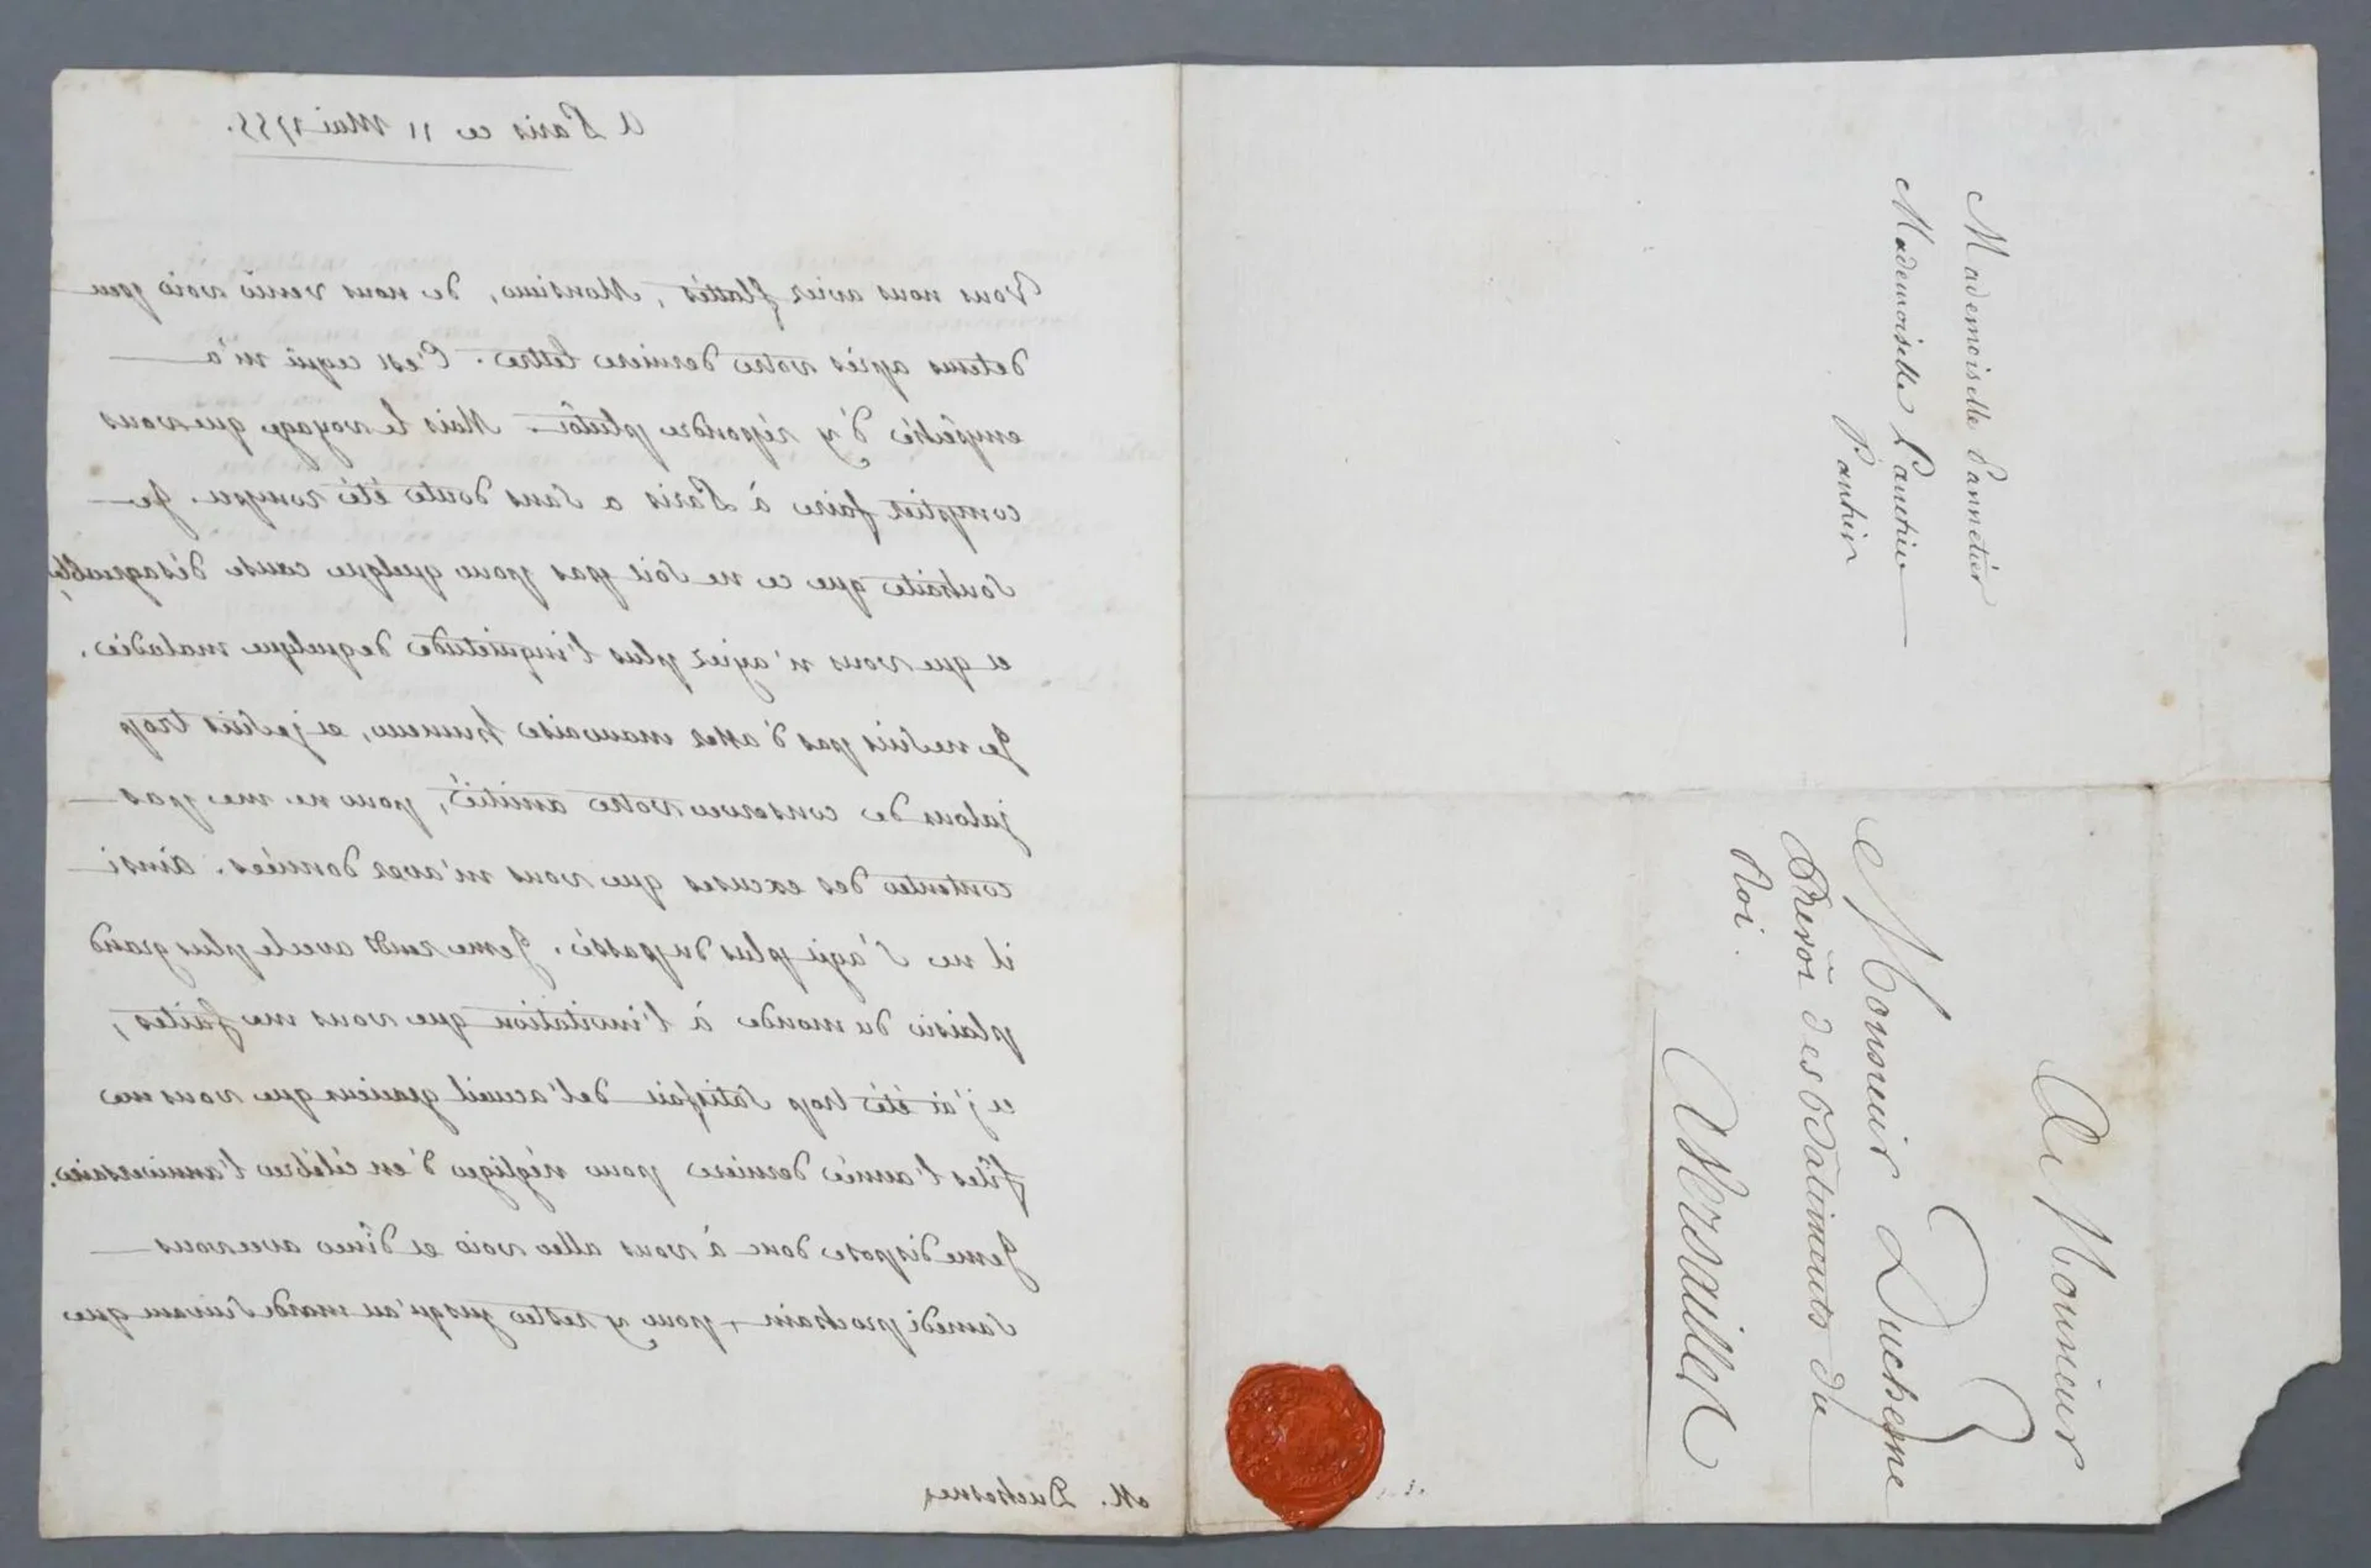 A Paris ce 11 Mai 1755.
Vous nous aviez flattés, Monsieur, de nous venir voir peu
detems après votre derniere lettre. C'est cequi m'a
empêché d'y répondre plutôt. Mais le voyage que vous
comptiez faire à Paris a sans doute été rompu. Je
souhaite que ce ne soit pas pour quelque cause désagreable,
et que vous n'ayiez plus l'inquietude de quelque maladie.
Je ne suis pas d'assez mauvaise humeur, et je suis trop
jaloux de conserver votre amitié, pour ne me pas
contenter des excuses que vous m'avez données. Ainsi
il ne s'agit plus du passé. Je me rends avec le plus grand
plaisir du monde à l'invitation que vous me faites,
et j'ai été trop satisfait de l'acueil gracieux que vous me
fîtes l'année derniere pour négliger d'en célébrer l'anniversaire.
Je me dispose donc à vous aller voir et dîner avec vous
samedi prochain, pour y rester jusqu'au mardi suivant que
M. Duchesne
Mademoiselle Pannetier
Mademoiselle Pautrier
A Monsieur
Monsieur Duchesne
Prevôt des Batiments du
Roi.
A Versailles